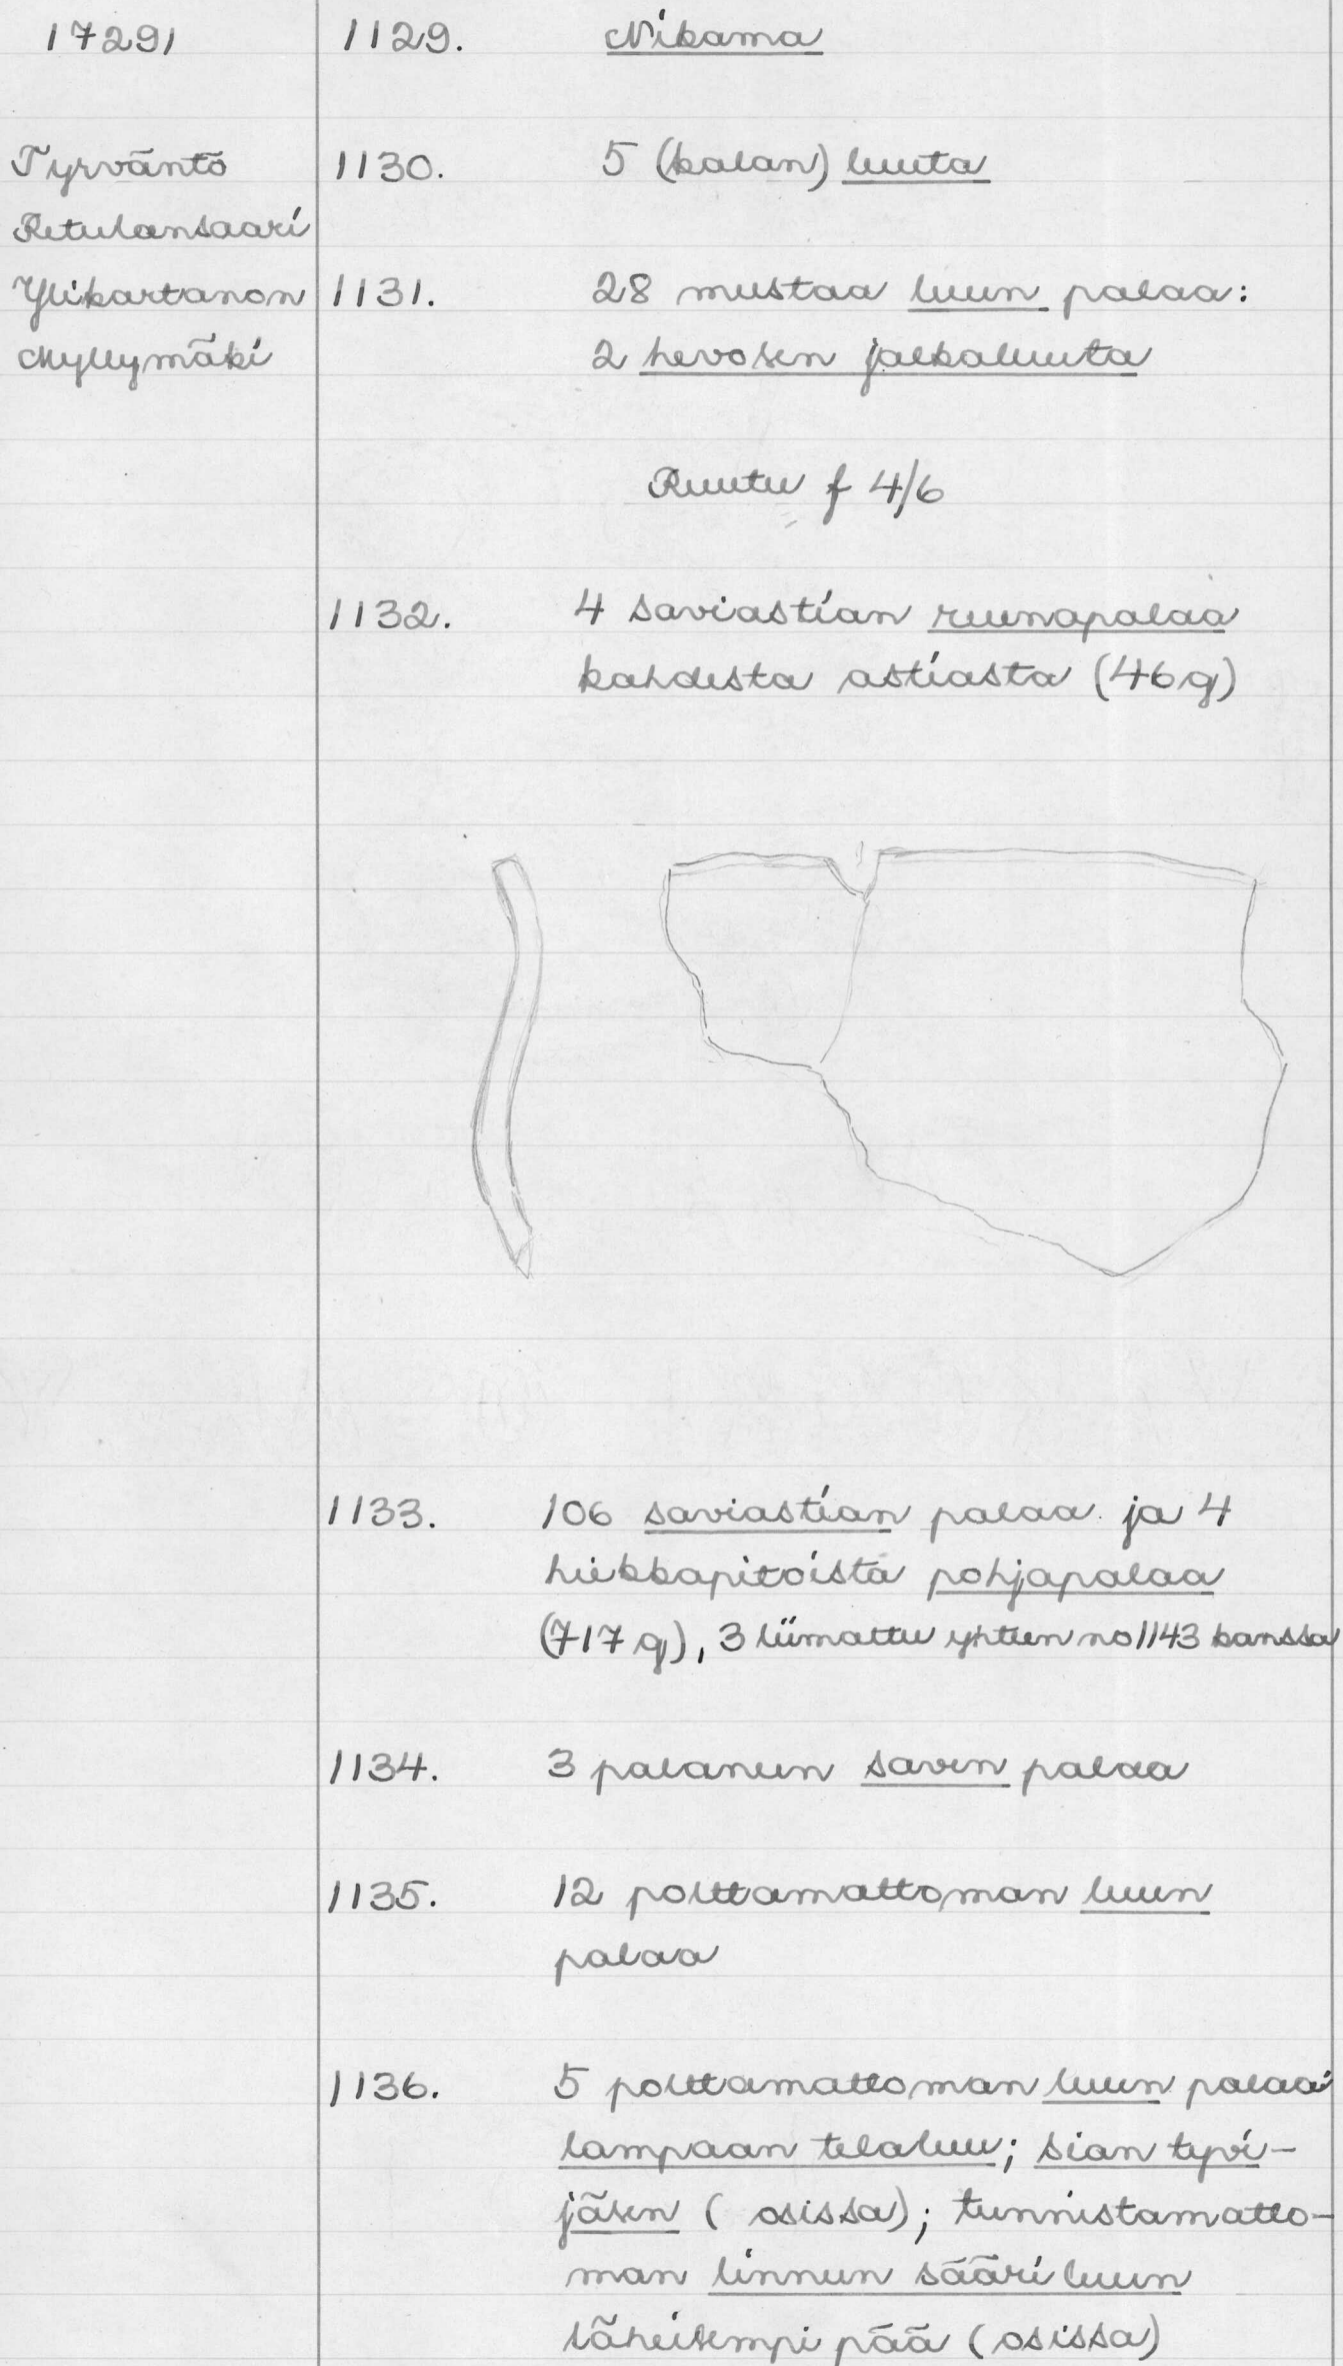 17291
1129. Nikama
Tyrväntö
1130. 5 (kalan) luuta
Retulansaari
Ylikartanon
1131. 28 mustaa luun palaa:
Myllymäki
2 hevosen jalkaluuta
Ruutu f 4/6
1132. 4 saviastian reunapalaa
kahdesta astiasta (46 g)
1133. 106 saviastian palaa ja 4
hiekkapitoista pohjapalaa
(717 g), 3 liimattu yhteen no 1143 kanssa
1134. 3 palaneen saven palaa
1135. 12 polttamattoman luun
palaa
1136. 5 polttamattoman luun palaa
lampaan telaluu; sian tyvi-
jäsen (osissa); tunnistamatto-
man linnun sääriluun
läheisempi pää (osissa)